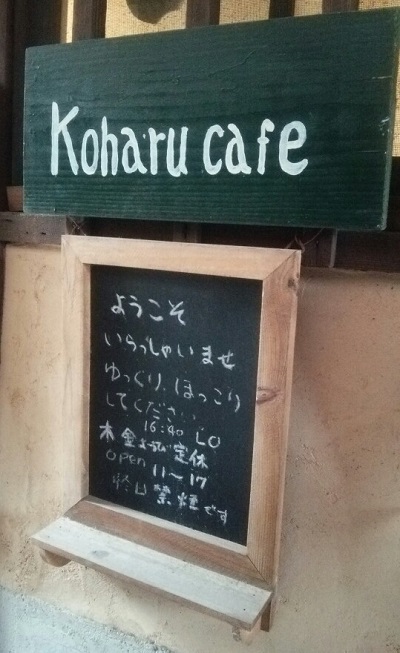 Koharu cafe
ようこそ
いらっしゃいませ
ゆっくり、ほっこり
してください
16:40 LO
木金および定休
OPEN 11～17
終日禁煙です